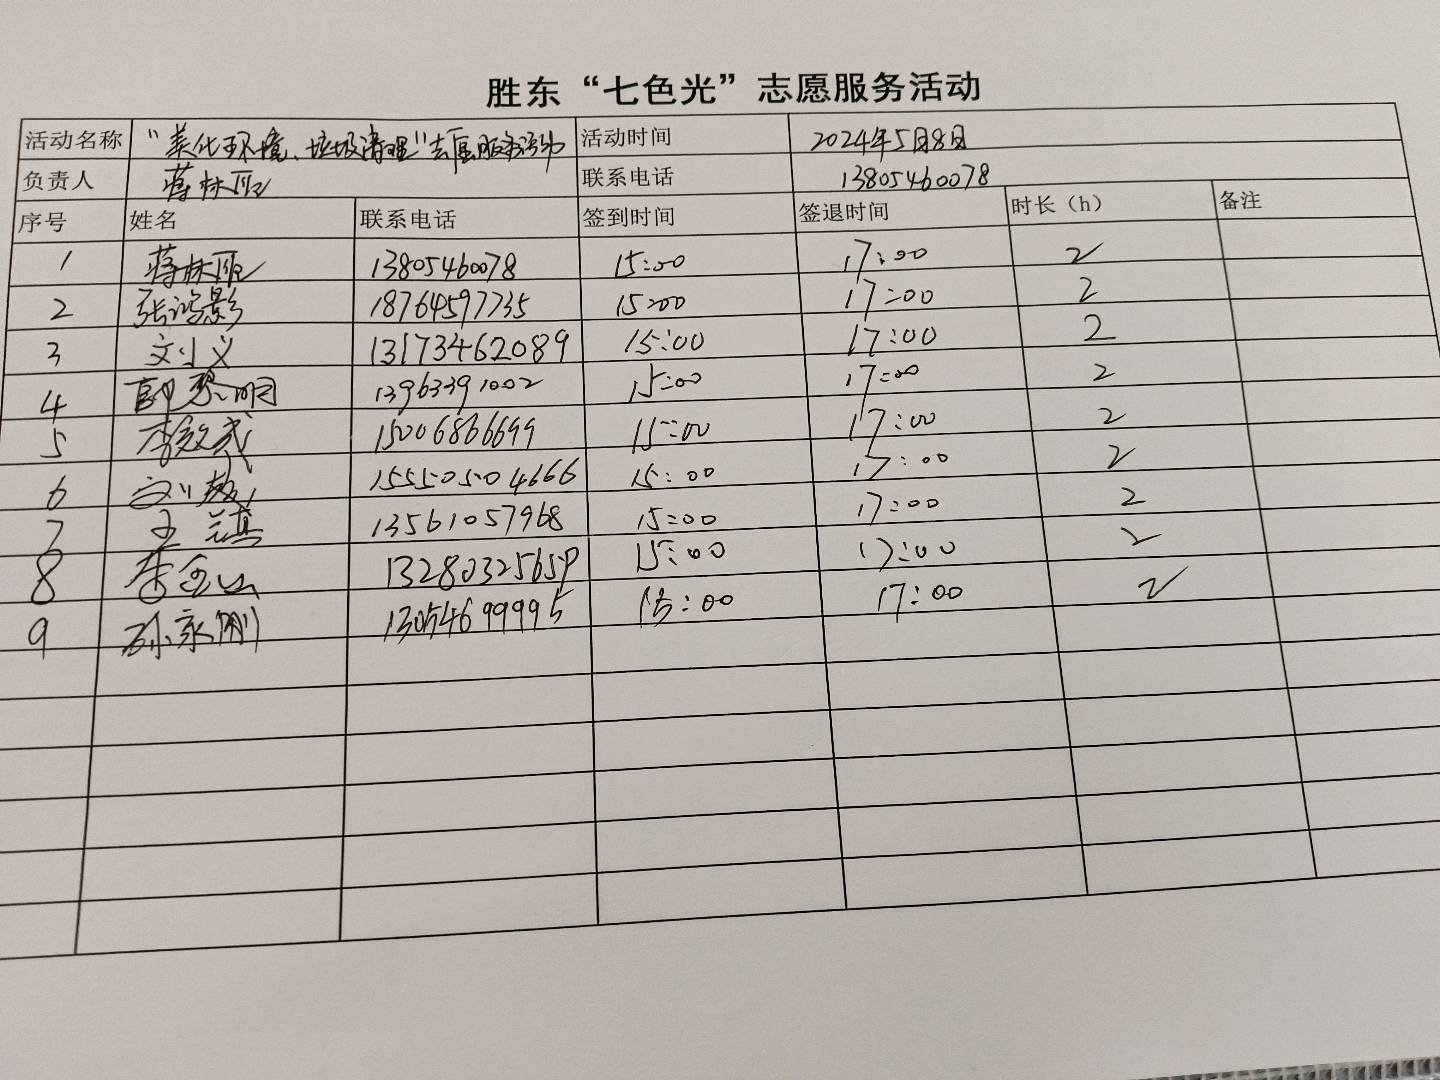 胜东“七色光”志愿服务活动
活动名称 “美化环境、垃圾清理”志愿服务活动 活动时间 2024年5月8日
负责人 蒋林 联系电话 13805460078
序号 姓名 联系电话 签到时间 签退时间 时长（h） 备注
1 蒋林 13805460078 15:00 17:00 2
2 张鸿影 18764597735 15:00 17:00 2
3 刘义 13173462089 15:00 17:00 2
4 郭明 13963391002 15:00 17:00 2
5 李效武 15006866699 15:00 17:00 2
6 刘敏 15550504666 15:00 17:00 2
7 王 13561057968 15:00 17:00 2
8 李金山 13280325659 15:00 17:00 2
9 孙永刚 13054699995 15:00 17:00 2